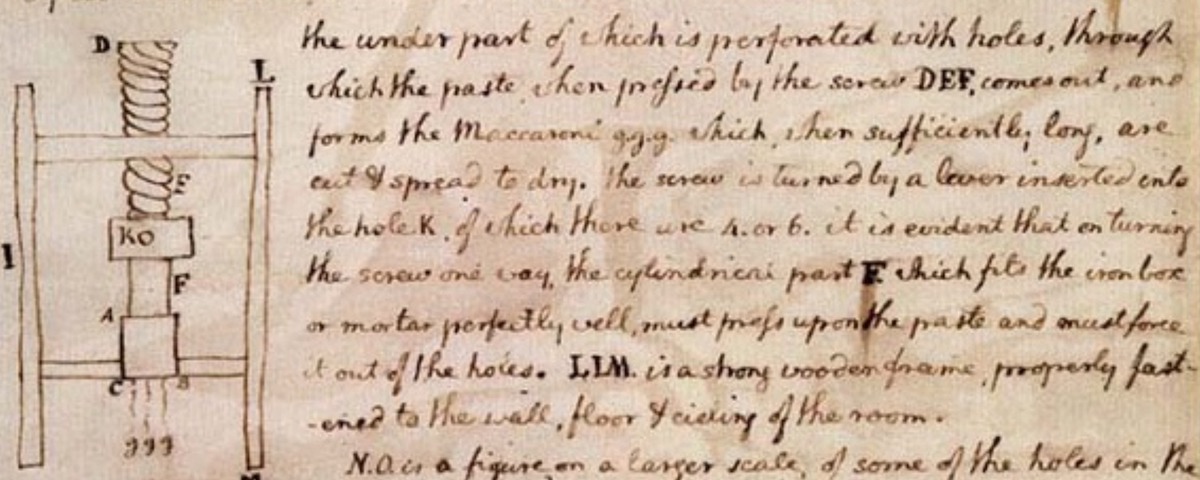 D
L
E
KO
I
F
A
C B
ggg
M
the under part of which is perforated with holes, through
which the paste, when pressed by the screw DEF, comes out, and
forms the Maccaroni g.g.g. which, when sufficiently long, are
cut & spread to dry. the screw is turned by a lever inserted into
the hole K. of which there are 4. or 6. it is evident that on turning
the screw one way, the cylindrical part F. which fits the iron box
or mortar perfectly well, must press upon the paste and must force
it out of the holes. LLM. is a strong wooden frame, properly fast-
-ened to the wall, floor & cieling of the room.
N.O. is a figure, on a larger scale, of some of the holes in the